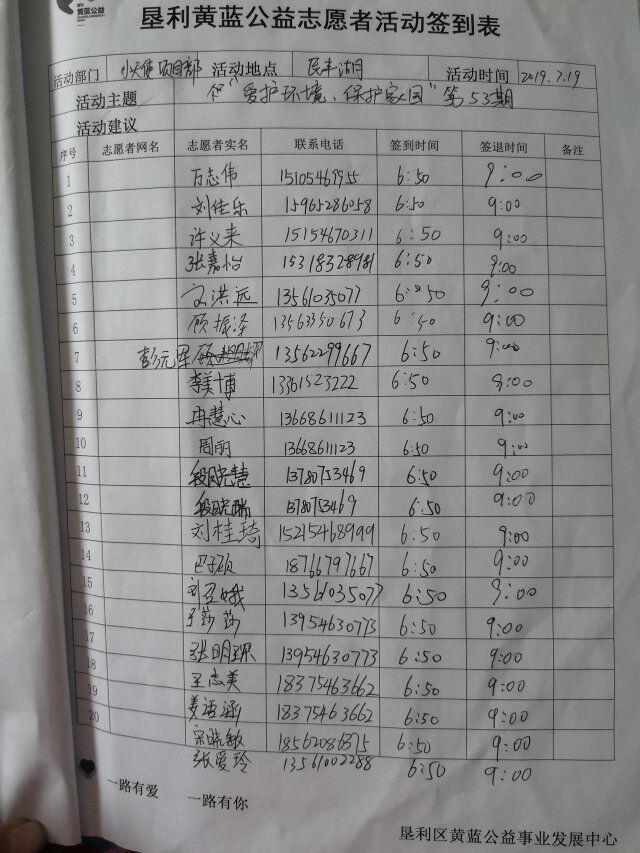 黄蓝公益
垦利黄蓝公益志愿者活动签到表
活动部门 小天使项目部 活动地点 民丰湖 活动时间 2019.7.19
活动主题 "爱护环境、保护家园"第53期
活动建议
序号 志愿者网名 志愿者实名 联系电话 签到时间 签退时间 备注
1 万志伟 6:50 9:00
2 刘佳乐 15965286058 6:50 9:00
3 许义来 15154670311 6:50 9:00
4 张嘉怡 15318328981 6:50 9:00
5 洪远 13561035077 6:50 9:00
6 顾振泽 13563350673 6:50 9:00
7 彭元军 13562299667 6:50 9:00
8 李美博 13361523222 6:50 9:00
9 冉慧心 13668611123 6:50 9:00
10 周丽 13668611123 6:50 9:00
11 段晓慧 13780753469 6:50 9:00
12 段晓瑞 13780753469 6:50 9:00
13 刘桂琦 15215468999 6:50 9:00
14 巴子硕 18766797667 6:50 9:00
15 刘亚娥 13561035077 6:50 9:00
16 王莎莎 13954630773 6:50 9:00
17 张明琛 13954630773 6:50 9:00
18 王志美 18375463662 6:50 9:00
19 姜语涵 18375463662 6:50 9:00
20 宋晓敏 6:50 9:00
张爱玲 13561002288 6:50 9:00
一路有爱 一路有你
垦利区黄蓝公益事业发展中心